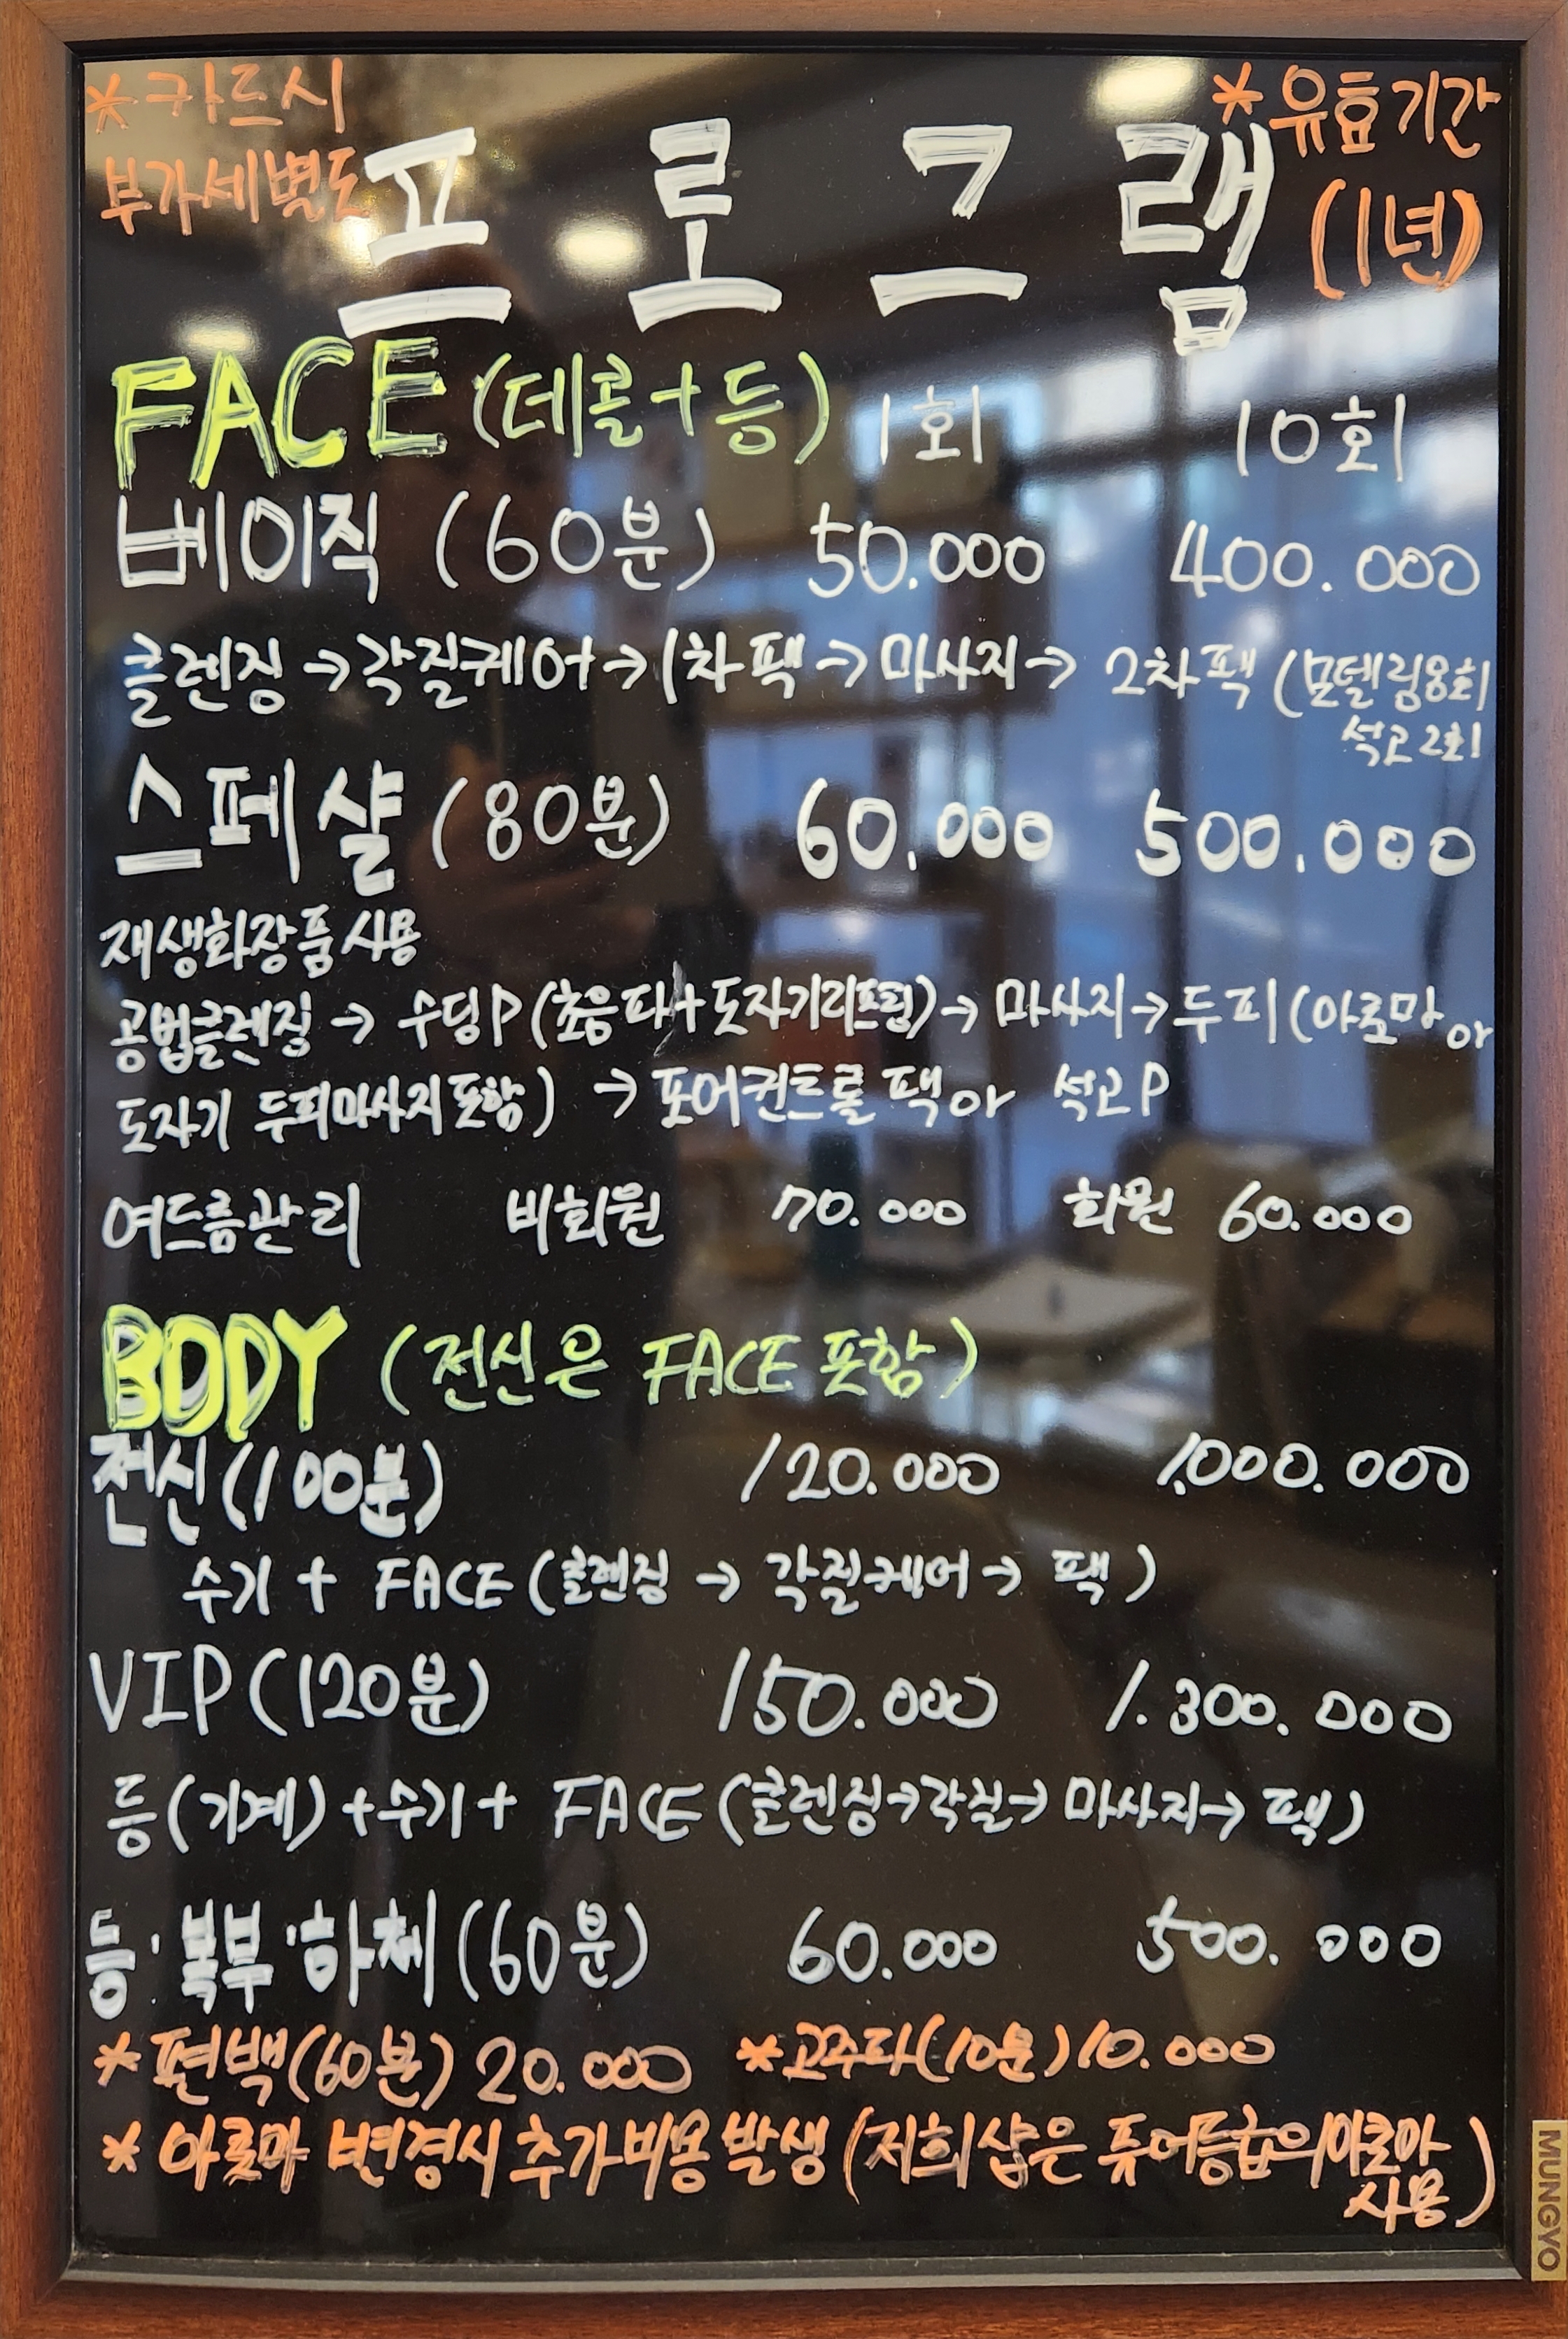 * 카드시
부가세별도
* 유효기간
(1년)
프로그램
FACE (데콜+등) 1회 10회
베이직 (60분) 50.000 400.000
클렌징 → 각질케어 → 1차팩 → 마사지 → 2차팩 (모델링8회
석고2회
스페샬 (80분) 60.000 500.000
재생화장품사용
공법클렌징 → 수딩P (초음파+도자기리프팅) → 마사지 → 두피 (아로마 or
도자기 두피마사지포함) → 포어컨트롤 팩 or 석고P
여드름관리 비회원 70.000 회원 60.000
BODY (전신은 FACE 포함)
전신 (100분) 120.000 1.000.000
수기 + FACE (클렌징 → 각질케어 → 팩)
VIP (120분) 150.000 1.300.000
등(기계) + 수기 + FACE (클렌징→각질→ 마사지→ 팩)
등·복부·하체 (60분) 60.000 500.000
* 편백(60분) 20.000 * 고주파(10분) 10.000
* 아로마 변경시 추가비용 발생 (저희샵은 퓨어등급의아로마
사용)
MUNGYO